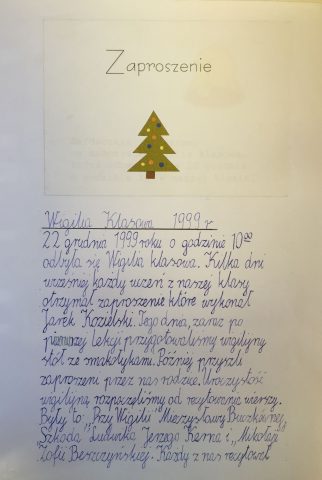 Zaproszenie
Wigilia Klasowa 1999 r.
22 grudnia 1999 roku o godzinie 10⁰⁰
odbyła się Wigilia klasowa. Kilka dni
wcześniej każdy uczeń z naszej klasy
otrzymał zaproszenie które wykonał
Jarek Kozielski. Tego dnia, zaraz po
pierwszej lekcji przygotowaliśmy wigilijny
stół ze smakołykami. Później przyszli
zaproszeni przez nas rodzice. Uroczystość
wigilijną rozpoczęliśmy od recytowania wierszy.
Były to: „Przy Wigilii" Mieczysławy Buczkówny,
„Szkoda" Ludwika Jerzego Kerna i „Mikołaj"
Zofii Beszczyńskiej. Każdy z nas recytował